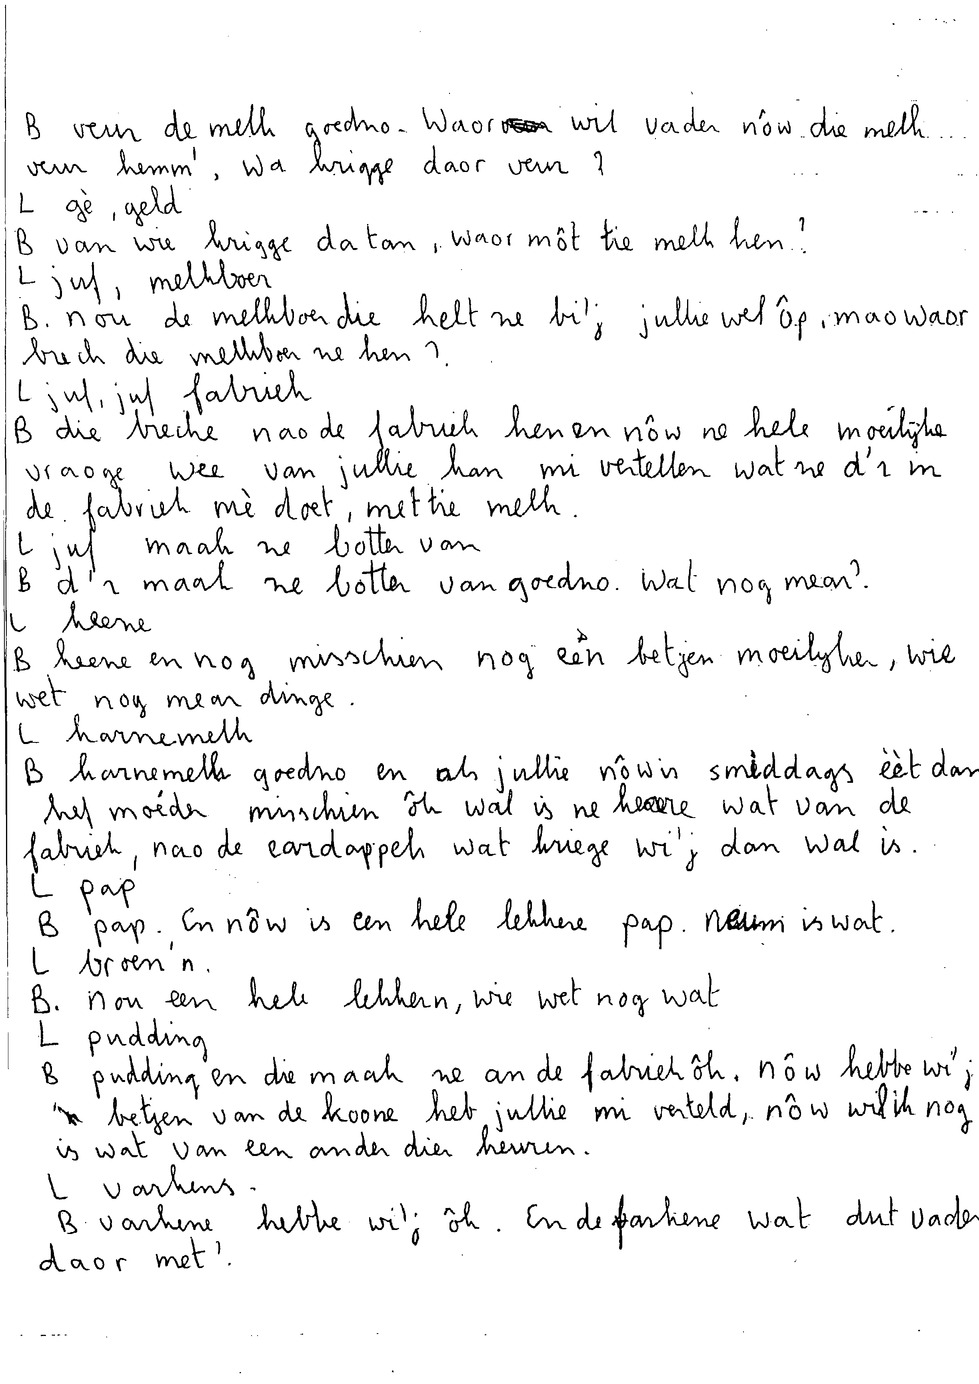 B veur de melk goedno. Waor wil vader nôw die melk
veur hemm', wa krigge daor veur?
L gè, geld
B van wie krigge da tan, waor môt tie melk hen?
L juf, melkboer
B. nou de melkboer die helt ne bi'j jullie wel ôp, mao waor
brech die melkboer ne hen?
L juf, juf fabriek
B die breche nao de fabriek hen en nôw ne hele moeilijke
vraoge wee van jullie kan mi vertellen wat ne d'r in
de fabriek mè doet, met tie melk.
L juf maak ne botter van
B d'r maak ne botter van goedno. Wat nog mear?
L keene
B keene en nog misschien nog eèn betjen moeilijker, wie
wet nog mear dinge.
L karnemelk
B karnemelk goedno en als jullie nôw is smiddags èèt dan
hef moéder misschien ôk wal is ne keere wat van de
fabriek, nao de eardappels wat kriege wi'j dan wal is.
L pap
B pap. En nôw is een hele lekkere pap. Neum is wat.
L broen'n.
B. nou een hele lekkern, wie wet nog wat
L pudding
B pudding en die maak ne an de fabriek ôk. nôw hebbe wi'j
'n betjen van de koone heb jullie mi verteld, nôw wil ik nog
is wat van een ander dier heuren.
L varkens.
B varkene hebbe wi'j ôk. En de farkene wat dut vader
daor met?